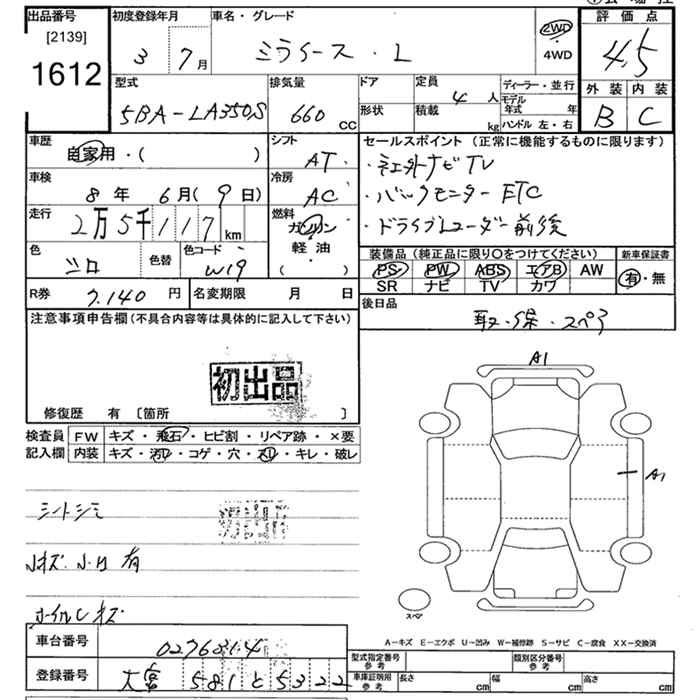 出品番号
[2139]
1612
初度登録年月
3 7月
車名・グレード
ミライース・L
2WD
4WD
評価点
4.5
外装 内装
B C
型式
5BA-LA350S
排気量
660 cc
ドア
形状
定員
4人
積載
kg
ディーラー・並行
モデル年式 年
ハンドル 左・右
車歴
自家用・( )
シフト
AT
セールスポイント(正常に機能するものに限ります)
・社外ナビTV
・バックモニター ETC
・ドライブレコーダー前後
車検
8年 6月(9日)
冷房
AC
走行
2万5千117km
燃料
ガソリン
軽・油
( )
色
シロ
色替
色コード
W19
装備品(純正品に限り〇をつけてください)
PS PW ABS エアB AW
SR ナビ TV カワ
新車保証書
有・無
R券
7,140円
名変期限 月 日
後日品
取・保・スペア
注意事項申告欄(不具合内容等は具体的に記入して下さい)
初出品
修復歴 有 [箇所 ]
検査員記入欄
FW キズ・飛石・ヒビ割・リペア跡・×要
内装 キズ・汚レ・コゲ・穴・スレ・キレ・破レ
A1
A1
シートシミ
小キズ.小凹 有
ホイルCキズ
スペア
A-キズ E-エクボ U-凹み W-補修跡 S-サビ C-腐食 XX-交換済
車台番号
0276314
登録番号
大宮 581と5322
型式指定番号 参考
類別区分番号 参考
車庫証明用 参考
長さ cm
幅 cm
高さ cm